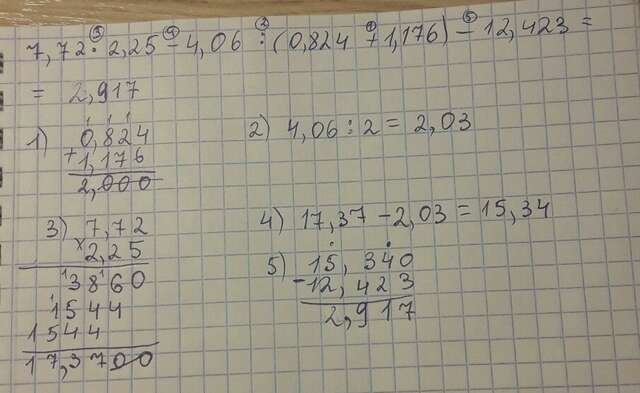 7,72 · 2,25 - 4,06 : (0,824 + 1,176) - 12,423 =
= 2,917
1) 0,824
+ 1,176
2,000
2) 4,06 : 2 = 2,03
3) 7,72
x 2,25
3860
1544
1544
17,3700
4) 17,37 - 2,03 = 15,34
5) 15,340
- 12,423
2,917